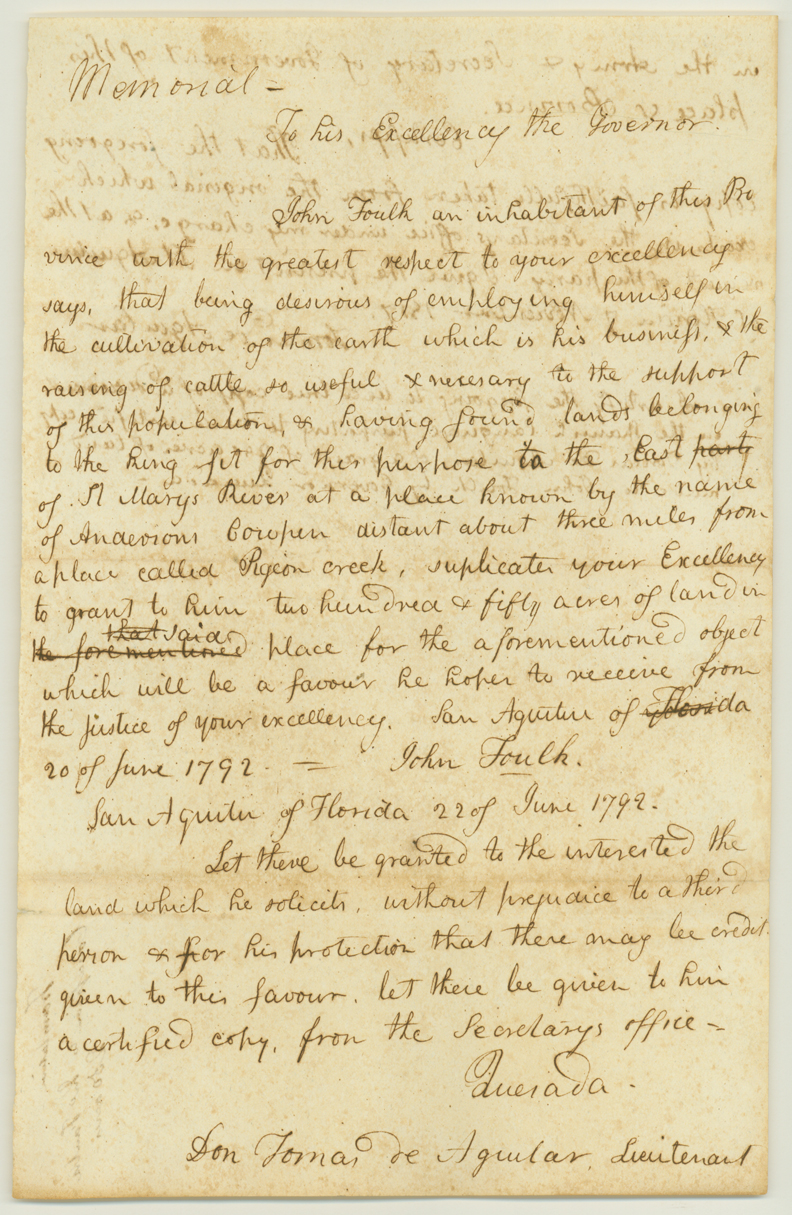 Memorial =
To his Excellency the Governor.
John Foulk an inhabitant of this Pro
vince with the greatest respect to your excellency
says, that being desirous of employing himself in
the cultivation of the earth which is his business, & the
raising of cattle so useful & necesary to the support
of this population, & having found lands belonging
to the King fit for this purpose to the East party
of St Marys River at a place known by the name
of Andersons Cowpen distant about three miles from
a place called Pigeon creek, suplicates your Excellency
to grant to him two hundred & fifty acres of land in
that said
the forementioned place for the aforementioned object
which will be a favour he hopes to receive from
the justice of your excellency. San Agustin of Florida
20 of June 1792. = John Foulk.
San Agustin of Florida 22 of June 1792.
Let there be granted to the interested the
land which he solicits, without prejudice to a third
person & for his protection that there may be credit
given to this favour. let there be given to him
a certified copy, from the Secretarys office =
Quesada.
Don Tomas de Aguilar, Lieutenant